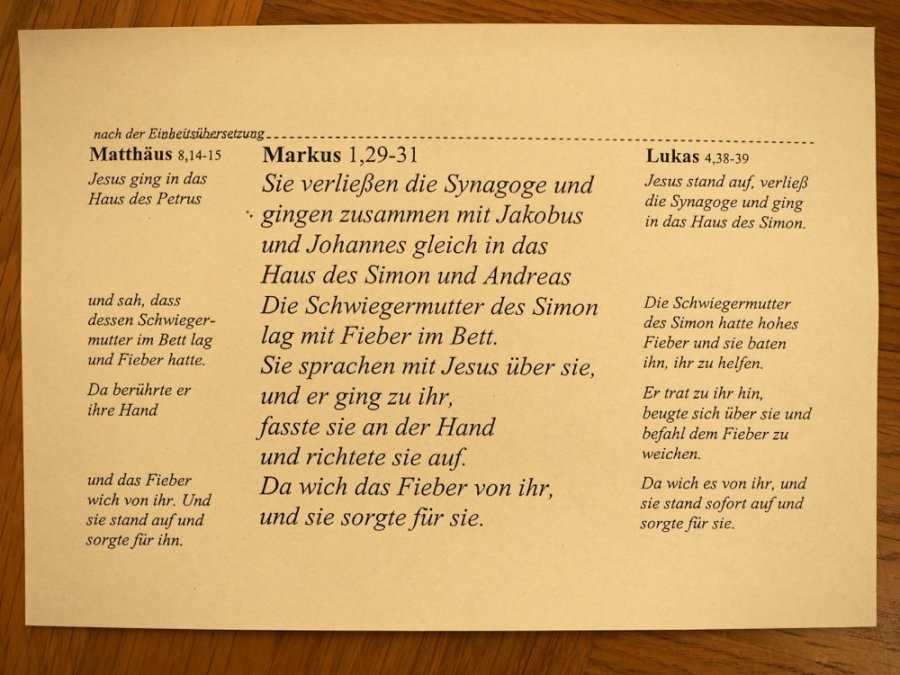 nach der Einheitsübersetzung
Matthäus 8,14-15
Jesus ging in das
Haus des Petrus
und sah, dass
dessen Schwieger-
mutter im Bett lag
und Fieber hatte.
Da berührte er
ihre Hand
und das Fieber
wich von ihr. Und
sie stand auf und
sorgte für ihn.
Markus 1,29-31
Sie verließen die Synagoge und
gingen zusammen mit Jakobus
und Johannes gleich in das
Haus des Simon und Andreas
Die Schwiegermutter des Simon
lag mit Fieber im Bett.
Sie sprachen mit Jesus über sie,
und er ging zu ihr,
fasste sie an der Hand
und richtete sie auf.
Da wich das Fieber von ihr,
und sie sorgte für sie.
Lukas 4,38-39
Jesus stand auf, verließ
die Synagoge und ging
in das Haus des Simon.
Die Schwiegermutter
des Simon hatte hohes
Fieber und sie baten
ihn, ihr zu helfen.
Er trat zu ihr hin,
beugte sich über sie und
befahl dem Fieber zu
weichen.
Da wich es von ihr, und
sie stand sofort auf und
sorgte für sie.